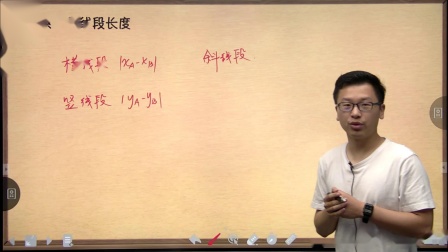 线段长度
横线段 |xA-xB| 斜线段
竖线段 |yA-yB|
圆
圆